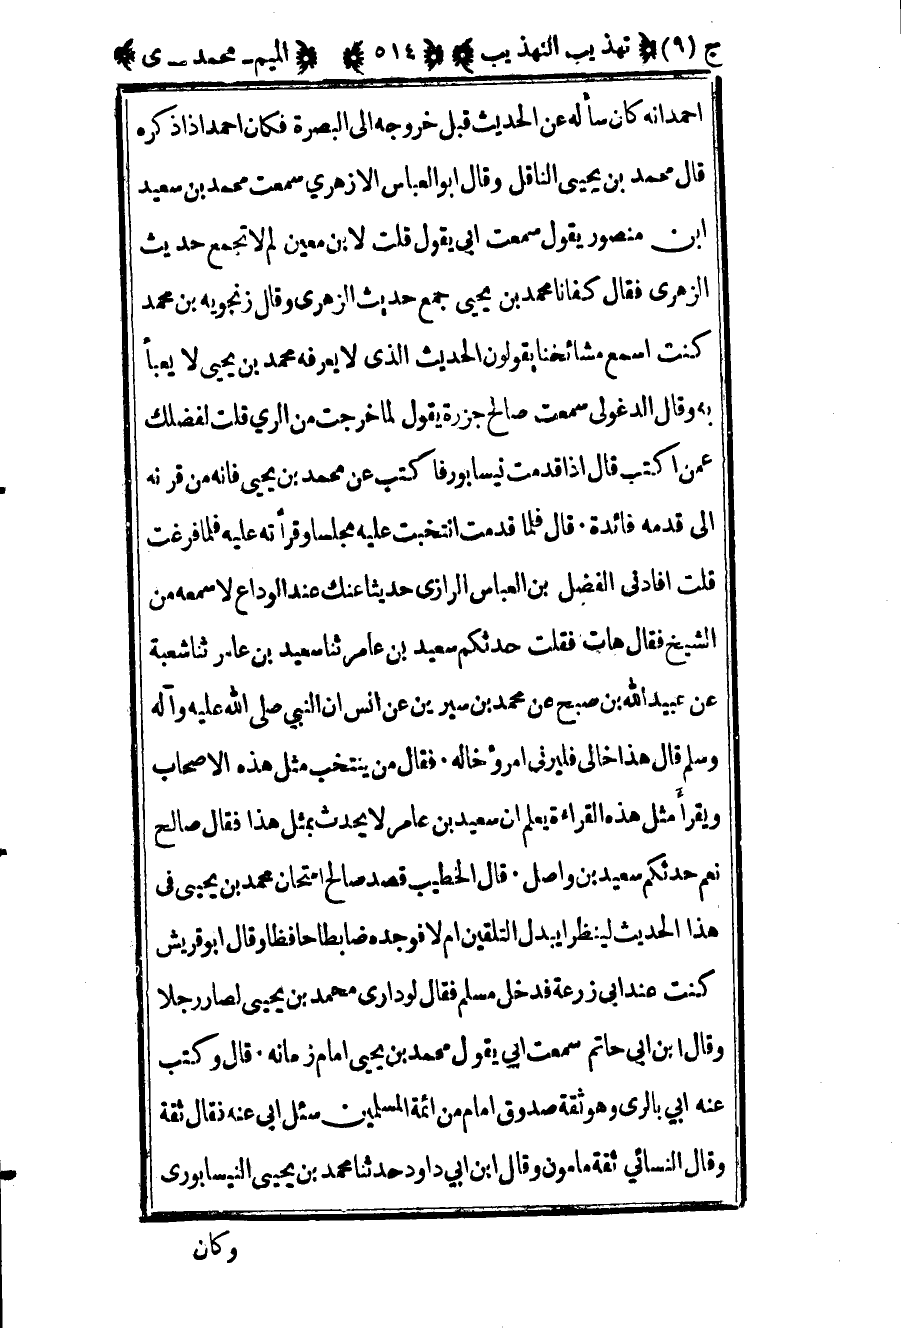 ج (٩) تهذيب التهذيب ٥١٤ الميم ـ محمد ـ ى
احمد انه كان سأله عن الحديث قبل خروجه الى البصرة فكان احمد اذا ذكره
قال محمد بن يحيى الناقل وقال ابو العباس الازهري سمعت محمد بن سعيد
ابن منصور يقول سمعت ابي يقول قلت لابن معين لم لا تجمع حديث
الزهرى فقال كفانا محمد بن يحيى جمع حديث الزهرى وقال زنجويه بن محمد
كنت اسمع مشائخنا يقولون الحديث الذى لا يعرفه محمد بن يحيى لا يعبأ
به وقال الدغولى سمعت صالح جزرة يقول لما خرجت من الري قلت لفضلك
عمن اكتب قال اذا قدمت نيسابور فاكتب عن محمد بن يحيى فانه من قرنه
الى قدمه فائدة ٠ قال فلما قدمت انتخبت عليه مجلسا وقرأته عليه فلما فرغت
قلت افادنى الفضل بن العباس الرازى حديثا عنك عند الوداع لاسمعه من
الشيخ فقال هات فقلت حدثكم سعيد بن عامر ثنا سعيد بن عامر ثنا شعبة
عن عبيد الله بن صبح عن محمد بن سيرين عن انس ان النبي صلى الله عليه وآله
وسلم قال هذا خالى فليرنى امرؤ خاله ٠ فقال من ينتخب مثل هذه الاصحاب
ويقرأ مثل هذه القراءة يعلم ان سعيد بن عامر لا يحدث بمثل هذا فقال صالح
نعم حدثكم سعيد بن واصل ٠ قال الخطيب قصد صالح امتحان محمد بن يحيى فى
هذا الحديث لينظر ايبدل التلقين ام لا فوجده ضابطا حافظا وقال ابو قريش
كنت عند ابى زرعة فدخل مسلم فقال لو دارى محمد بن يحيى لصار رجلا
وقال ابن ابى حاتم سمعت ابي يقول محمد بن يحيى امام زمانه ٠ قال وكتب
عنه ابي بالرى وهو ثقة صدوق امام من ائمة المسلمين سئل ابى عنه فقال ثقة
وقال النسائي ثقة مامون وقال ابن ابي داود حدثنا محمد بن يحيى النيسابورى
وكان